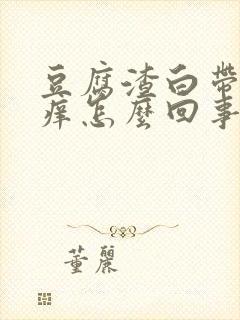 豆腐渣白帶
癢怎麼回事
董麗